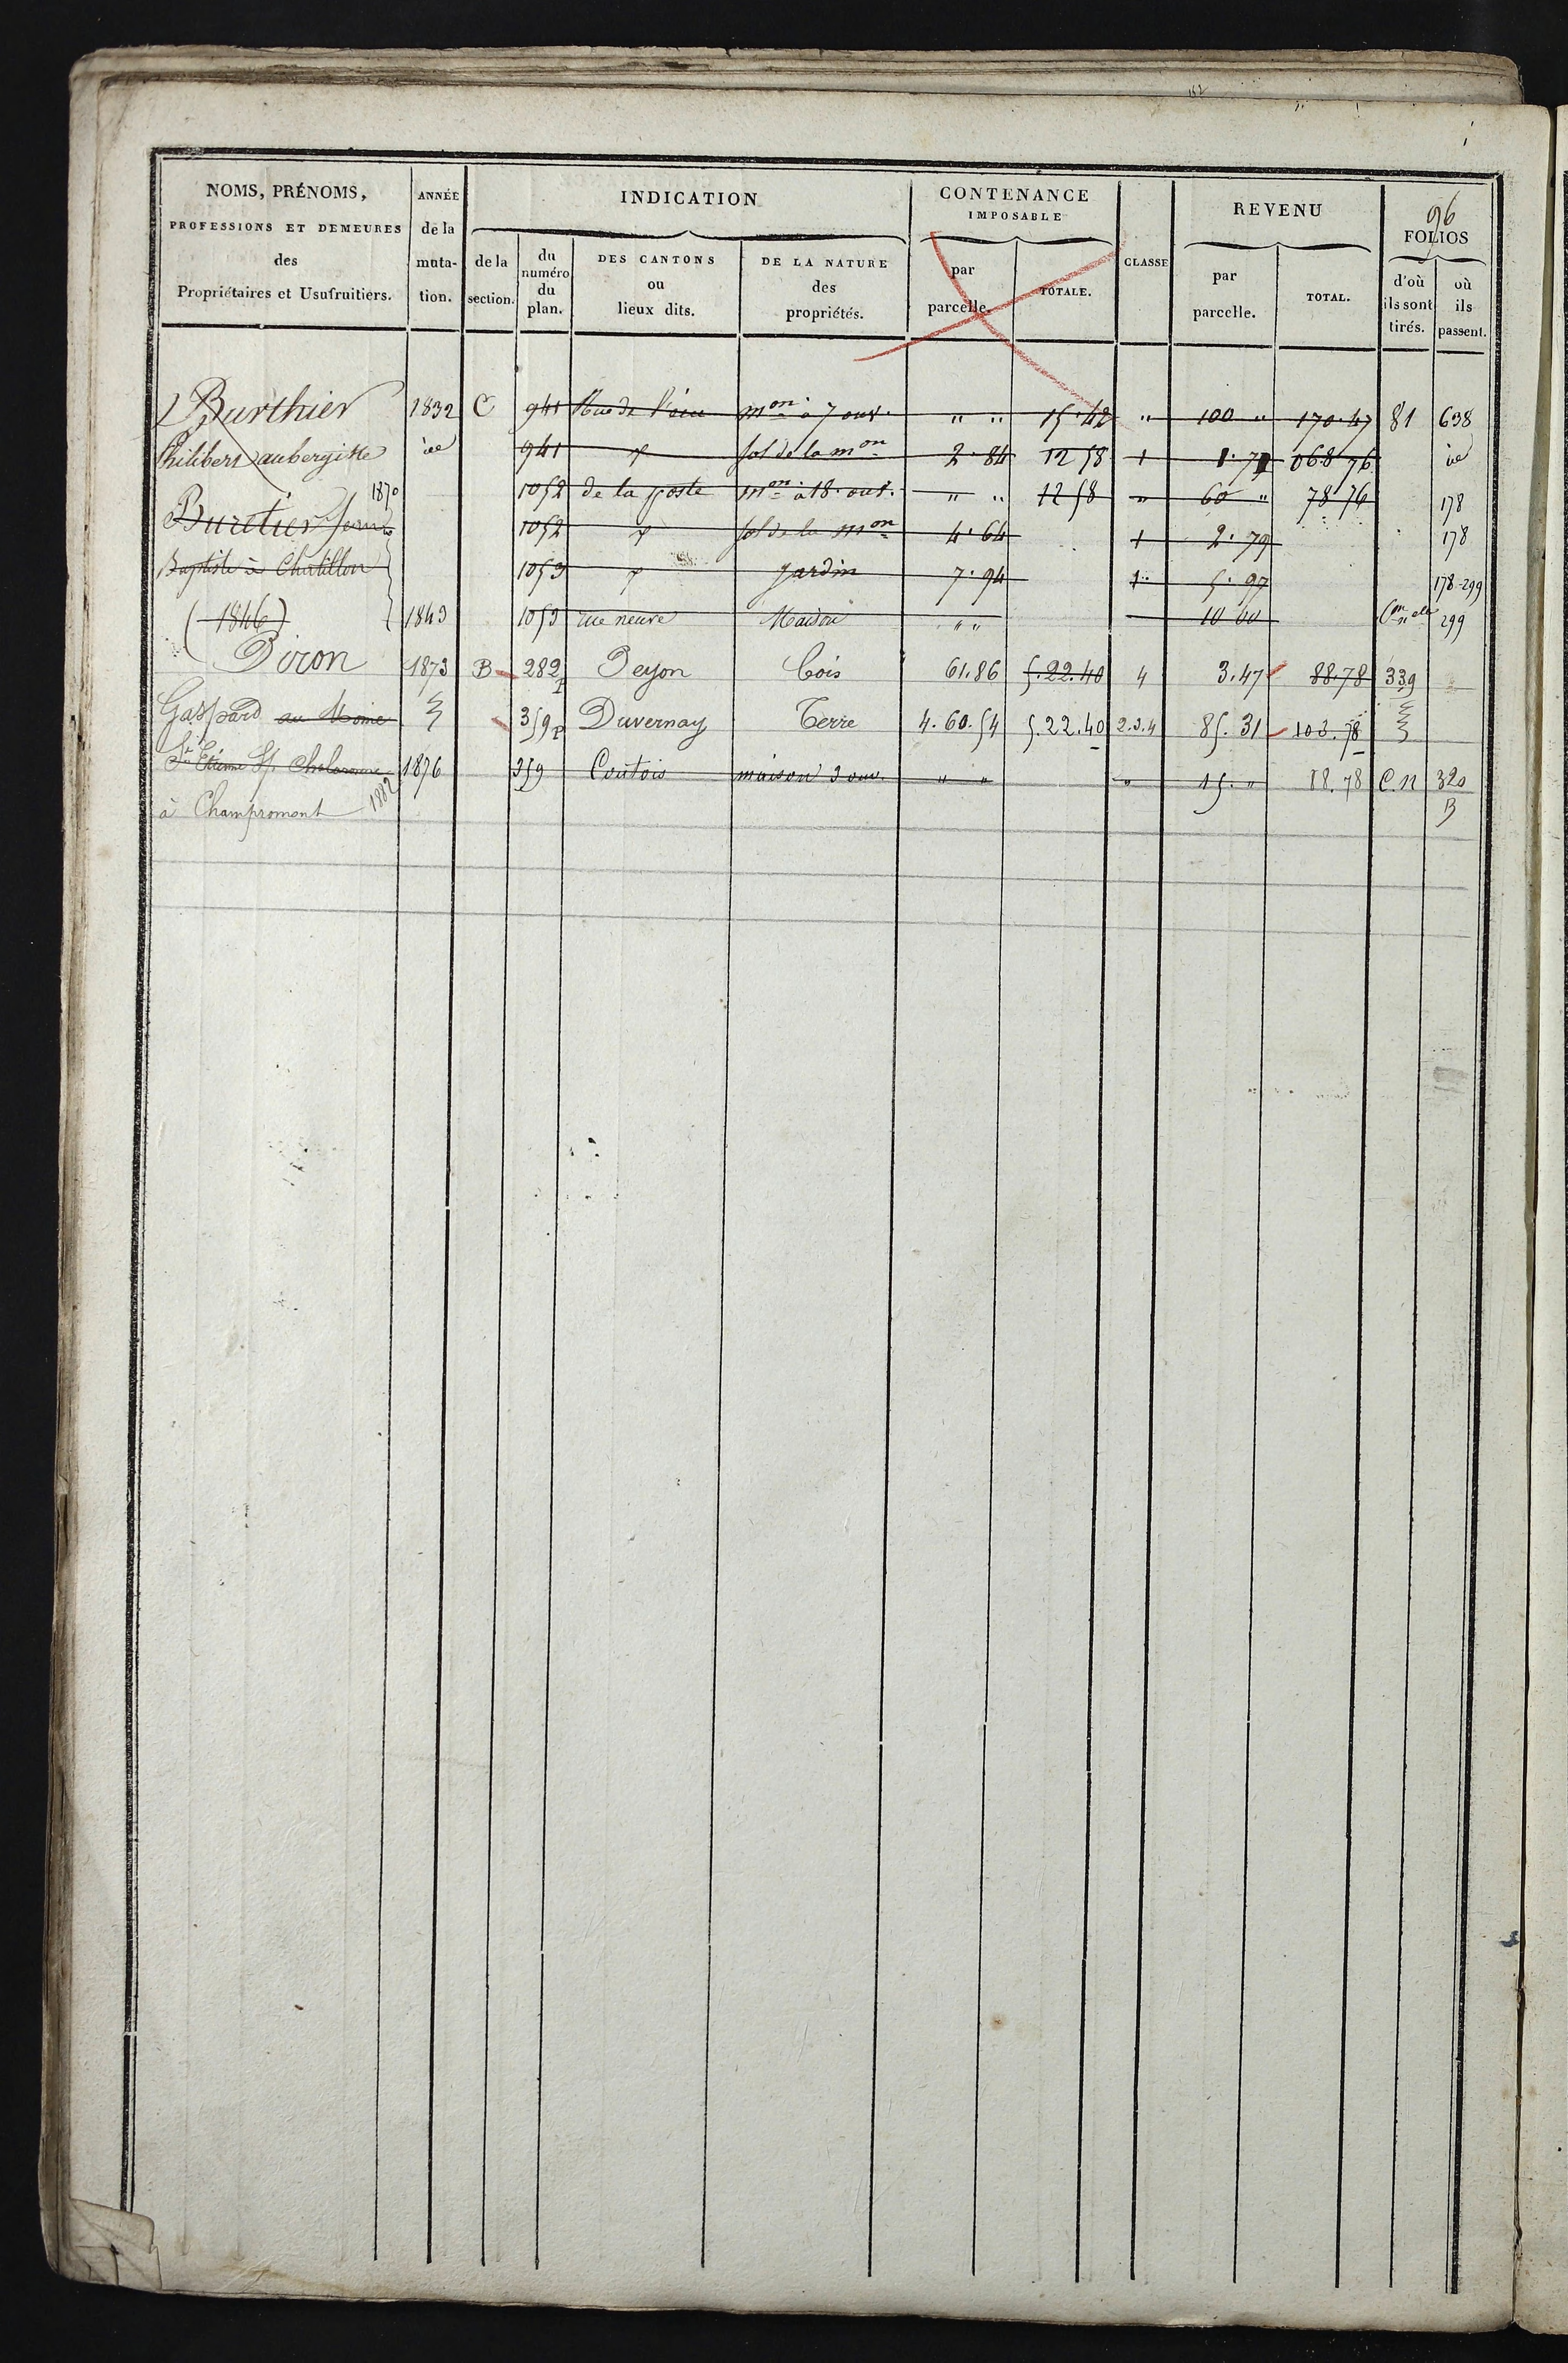 96
NOMS, PRÉNOMS, PROFESSIONS ET DEMEURES des Propriétaires et Usufruitiers.
ANNÉE de la muta- tion.
INDICATION
de la section.
du numéro du plan.
DES CANTONS ou lieux dits.
DE LA NATURE des propriétés.
CONTENANCE IMPOSABLE
par parcelle.
TOTALE.
CLASSE
REVENU
par parcelle.
TOTAL.
FOLIOS
d'où ils sont tirés.
où ils passent.
Burthier 1832 C 941 Rue de mon à 7 ouv. " " 15.42 " 100 " 170.47 81 638
Philibert aubergiste 941 sol de la mon 2.84 12 58 1 1.71 068 76
1870 1052 de la poste mon à 18 ouv. " " 12 58 " 60 " 78 76 178
Buretier Jean 1052 sol de la mon 4.64 1 2.79 178
Baptiste à Chatillon 1053 jardin 7.94 1 5.97 178-299
(1846) 1843 1053 rue neuve Maison " " 10 00 299
Piron 1873 B 282 Peyon bois 61.86 5.22.40 4 3.47 88.78 339
Gaspard au Moine 359p Duvernay Terre 4.60.54 5.22.40 2.3.4 85.31 103.78
St Etienne S/ Chalaronne 1876 359 Coutois maison 3 ouv. " " " 15. " 88.78 C.N 320
à Champromont 1882 B